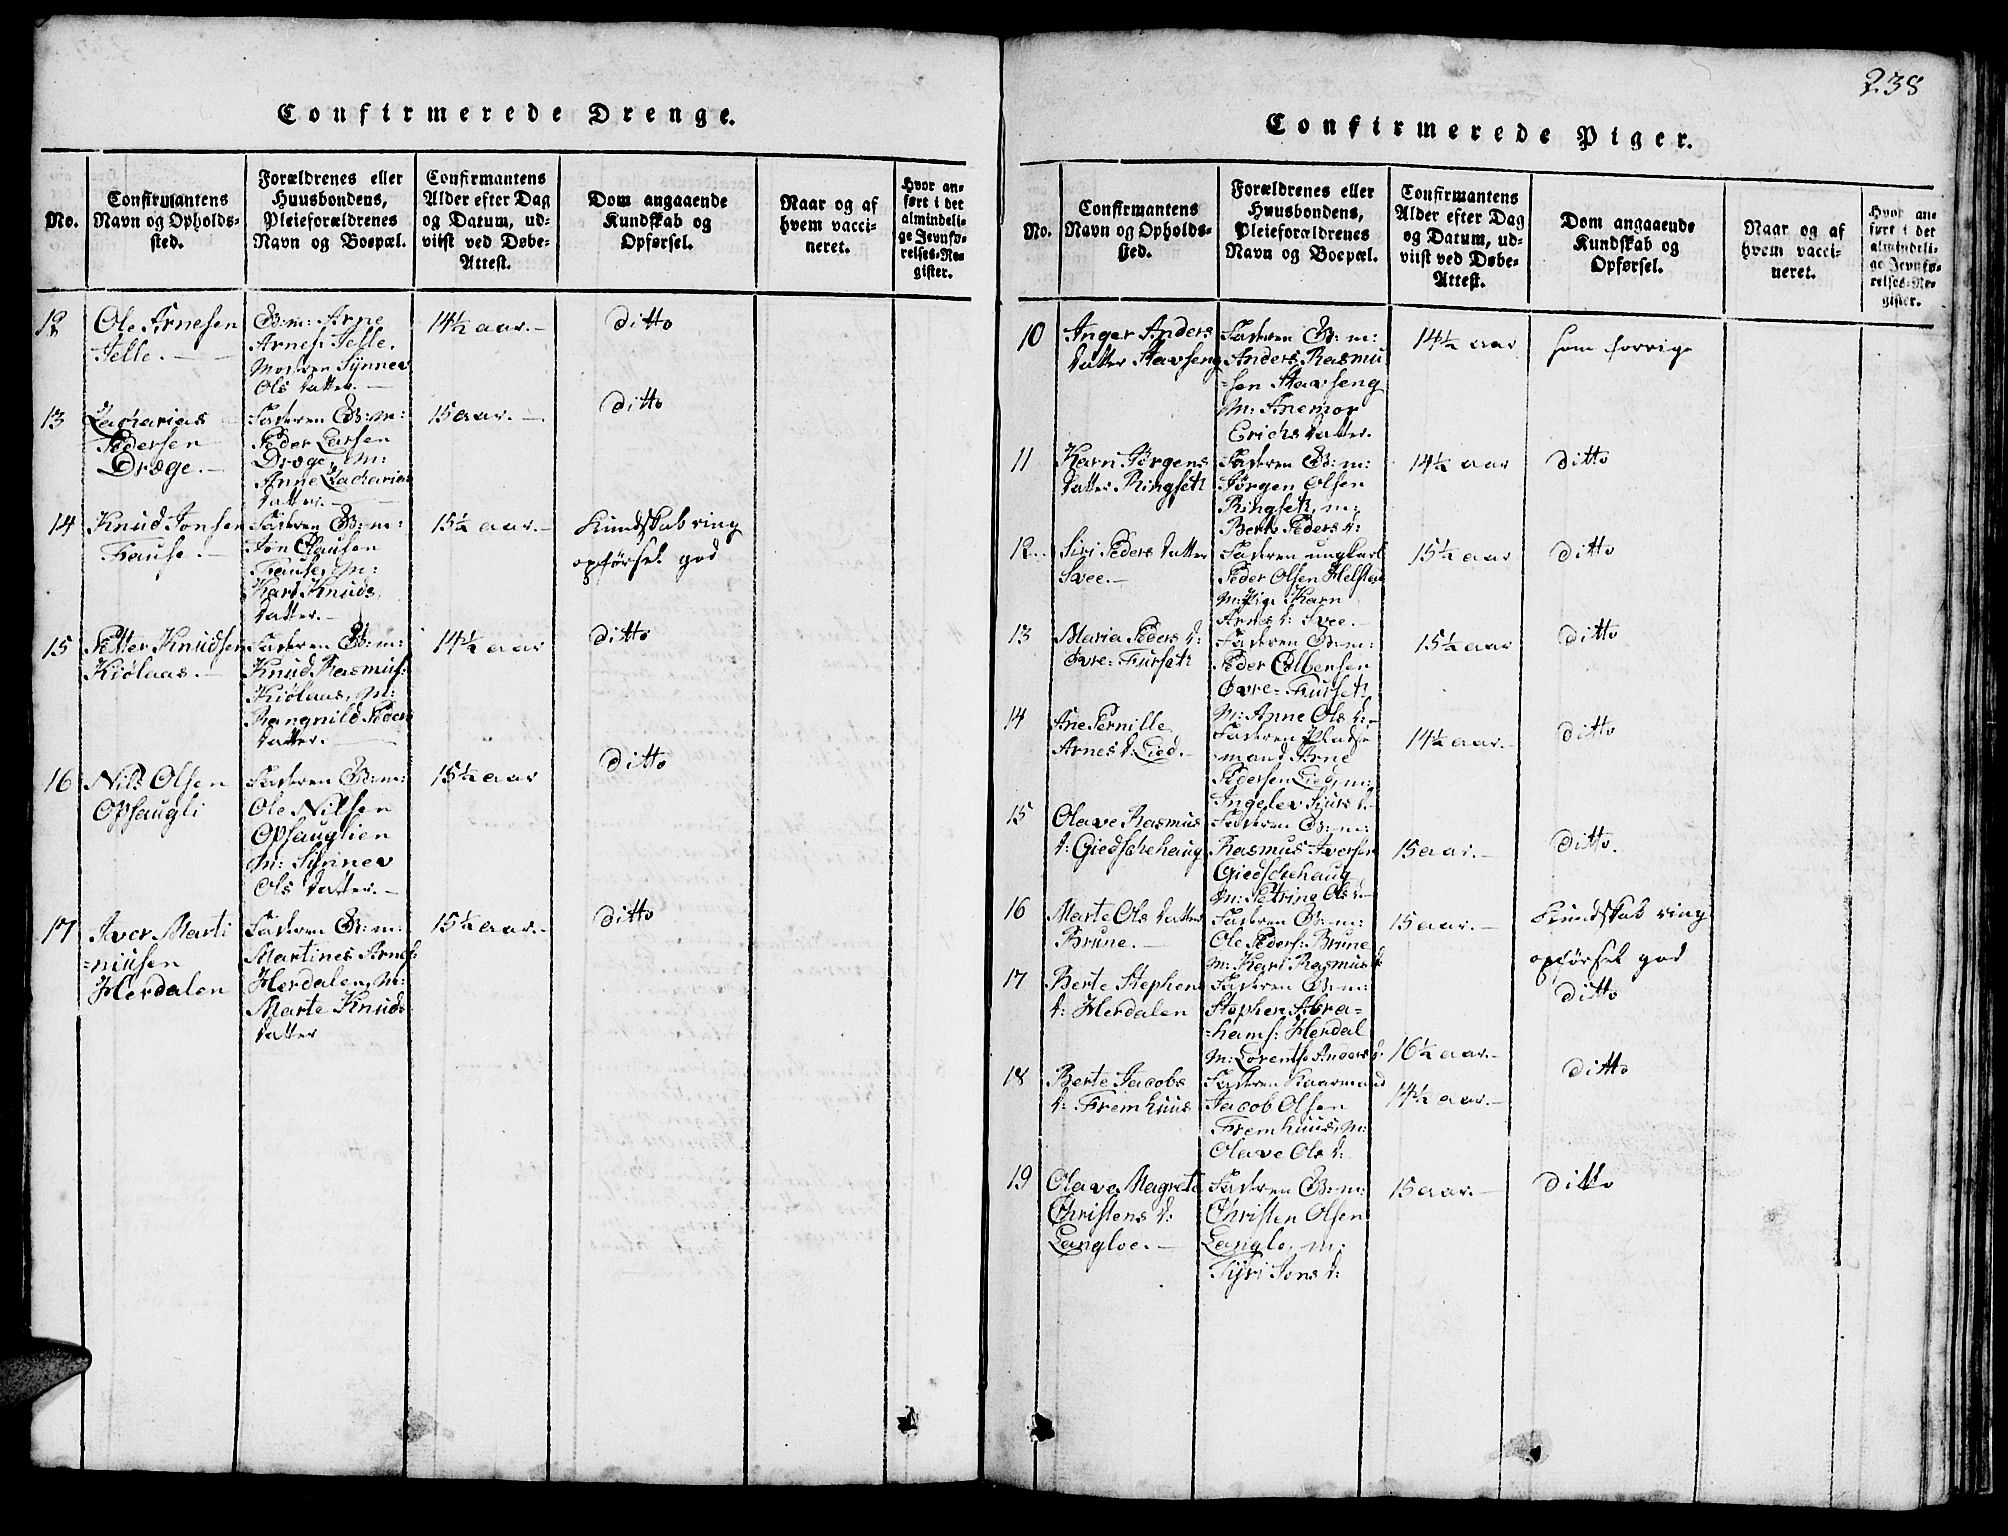 238
Confirmerede Drenge.
No.
Confirmantens
Navn og Opholds-
sted.
Forældrenes eller
Huusbondens,
Pleieforældrenes
Navn og Boepæl.
Confirmantens
Alder efter Dag
og Datum, ud-
viist ved Døbe-
Attest.
Dom angaaende
Kundskab og
Opførsel.
Naar og af
hvem vacci-
neret.
Hvor an-
ført i det
almindeli-
ge Jevnfø-
relses-Re-
gister.
12
Ole Arnesen
Selle. —
G:m: Arne
Arnes: Selle,
Moderen Synnev
Ols datter. —
14½ aar. —
ditto
13
Zacharias
Pedersen
Dræge. —
Faderen G:m:
Peder Larsen
Dræge, m:
Anne Zacharias
datter. —
15 aar. —
ditto
14
Knud Jonsen
Fause. —
Faderen G:m:
Jon Clausen
Fause, m:
Kari Knuds
datter. —
15½ aar. —
Kundskab ring
opførsel god
15
Petter Knudsen
Kiølaas. —
Faderen G:m:
Knud Rasmus:
Kiølaas, m:
Rangnild Peders
datter. —
14½ aar
ditto
16
Nils Olsen
Opsaugli
Faderen G:m:
Ole Nilsen
Opsauglien
m: Synnev
Ols datter. —
15½ aar
ditto
17
Iver Marti
=niusen
Herdalen
Faderen G:m:
Martines Arnes:
Herdalen, m:
Marte Knuds
datter
15½ aar. —
ditto
Confirmerede Piger.
No.
Confirmantens
Navn og Opholds-
sted.
Forældrenes eller
Huusbondens,
Pleieforældrenes
Navn og Boepæl.
Confirmantens
Alder efter Dag
og Datum, ud-
viist ved Døbe-
Attest.
Dom angaaende
Kundskab og
Opførsel.
Naar og af
hvem vacci-
neret.
Hvor an-
ført i det
almindeli-
ge Jevnfø-
relses-Re-
gister.
10
Inger Anders
datter Stavseng
Faderen G:m:
Anders Rasmu
=sen Stavseng
m: Anemor
Erichs datter.
14½ aar
som forrige
11
Karn Jørgens
datter Ringseth
Faderen G:m:
Jørgen Olsen
Ringseth, m:
Berte Peders d:
14½ aar
ditto
12
Siri Peders datter
Svee. —
Faderen ungkarl
Peder Olsen
m: Pige Karn
Arnes d: Svee. —
15½ aar
ditto
13
Maria Peders d:
Øvre=Furseth
Faderen G:m:
Peder Colbensen
Øvre=Furseth
m: Anne Ols d: —
15½ aar
ditto
14
Ane Pernille
Arnes d: Lied. —
Faderen Pladse
=mand Arne
Pedersen Lied, m:
Ingelev Siurs d: —
14½ aar. —
ditto
15
Olave Rasmus
d: Giedschehaug
Faderen G:m:
Rasmus Iversen
Giedschehaug
m: Petrine Ols d: —
15 aar. —
ditto.
16
Marte Ols datter
Brune. —
Faderen G:m:
Ole Peders: Brune
m: Kari Rasmus d:
15 aar. —
Kundskab ring
opførsel god
17
Berte Stephens
d: Herdalen
Faderen G:m:
Stephen Abra=
=hams: Herdal
m: Lorentse Anders d:
16½ aar. —
ditto
18
Berte Jacobs
d: Fremhuus
Faderen Kaarmand
Jacob Olsen
Fremhuus, m:
Olave Ols d:
14½ aar. —
ditto
19
Olava Magrete
Christens d:
Langloe. —
Faderen G:m:
Christen Olsen
Langlo, m:
Tyri Jons d:
15 aar. —
ditto